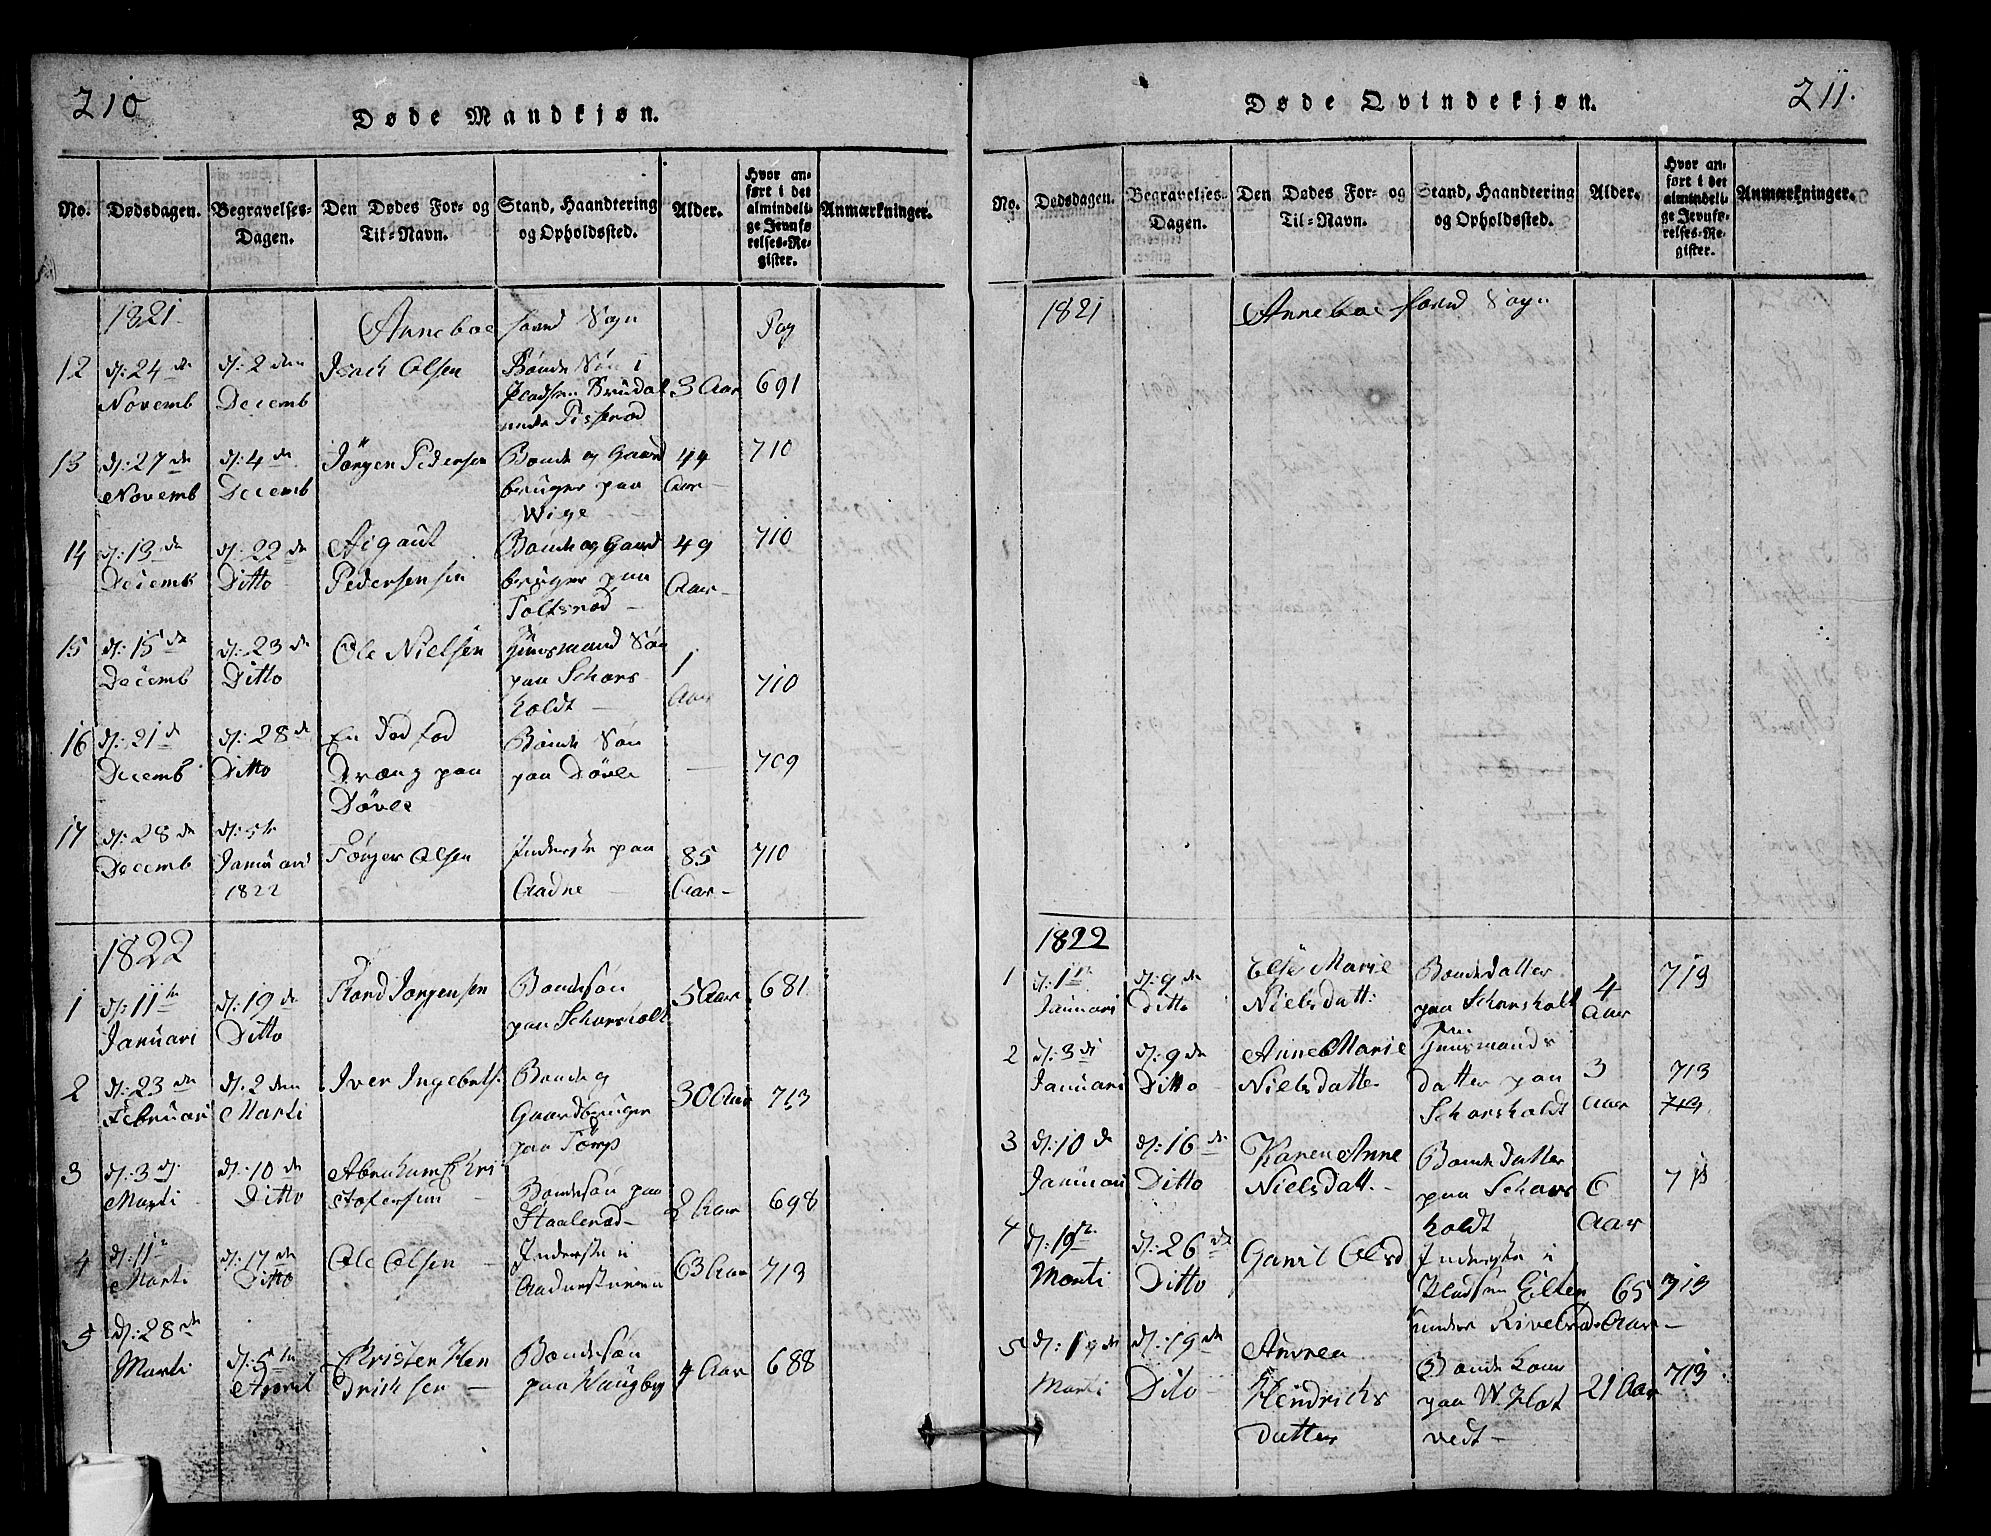 210
Døde Mandkjøn.
No. Dødsdagen. Begravelses-Dagen. Den Dødes For- og Til-Navn. Stand, Haandtering og Opholdssted. Alder. Hvor anført i det almindelige Jevnførelses-Register. Anmærkninger.
1821 Anneboe Sogn Pag
12 d: 24 de Novemb d: 2 den Decemb Isach Olsen Bonde Søn i Pladsen 3 Aar 691
13 d: 27 de Novemb d: 4 de Decemb Jørgen Pedersen Bonde og Gaard bruger paa Wige 44 Aar 710
14 d: 13 de Decemb d: 22 de Ditto Pedersen Bonde og Gaard bruger paa Toltsrød 49 Aar 710
15 d: 15 de Decemb d: 23 de Ditto Ole Nielsen Huusmand Søn paa Schorsholdt 1 Aar 710
16 d: 21 d Decemb d: 28 de Ditto En Død fød Dræng paa Døvle Bonde Søn paa Døvle — 709
17 d: 28 de Decemb d: 5te Januari 1822 Tørger Olsen Inderste paa Aadne 85 Aar 710
1822
1 d: 11te Januari d: 19 de Ditto Thord Jørgensen Bondesøn paa Schorsholt 5 Aar 681
2 d: 23 de Februari d: 2 den Marti Iver Ingebrets: Bonde og Gaardbruger paa Tørp 30 Aar 713
3 d: 3 di Marti d: 10 de Ditto Abraham Christofersen Bondesøn paa Staalerød 2 Aar 698
4 d: 11te Marti d: 17 de Ditto Ole Olsen Inderste i 63 Aar 713
5 d: 28 de Marti d: 5te Aprril Christen Hendrichsen Bondesøn paa Haugbg 4 Aar 688
211.
Døde Qvindekjøn.
No. Dødsdagen. Begravelses-Dagen. Den Dødes For- og Til-Navn. Stand, Haandtering og Opholdssted. Alder. Hvor anført i det almindelige Jevnførelses-Register. Anmærkninger.
1821 Anneboe Sogn
1822
1 d: 1te Januari d: 9 de Ditto Else Marie Nielsdatt: Bondedatter paa Schorsholt 4 Aar 713
2 d: 3 di Januari d: 9 de Ditto Anne Marie Nielsdatter Huusmands datter paa Schorsholdt 3 Aar 713 713
3 d: 10 d Januari d: 16 de Ditto Karen Anne Nielsdatt. Bondedatter paa Schorsholdt 6 Aar
4 d: 19te Marti d: 26 de Ditto Olsd Inderste i Pladsen under 65 Aar 713
5 d: 19 de Marti d: 19 de Dito Anrea Hendrichs Datter Bonde kone paa W. Flotvedt 21 Aar 713